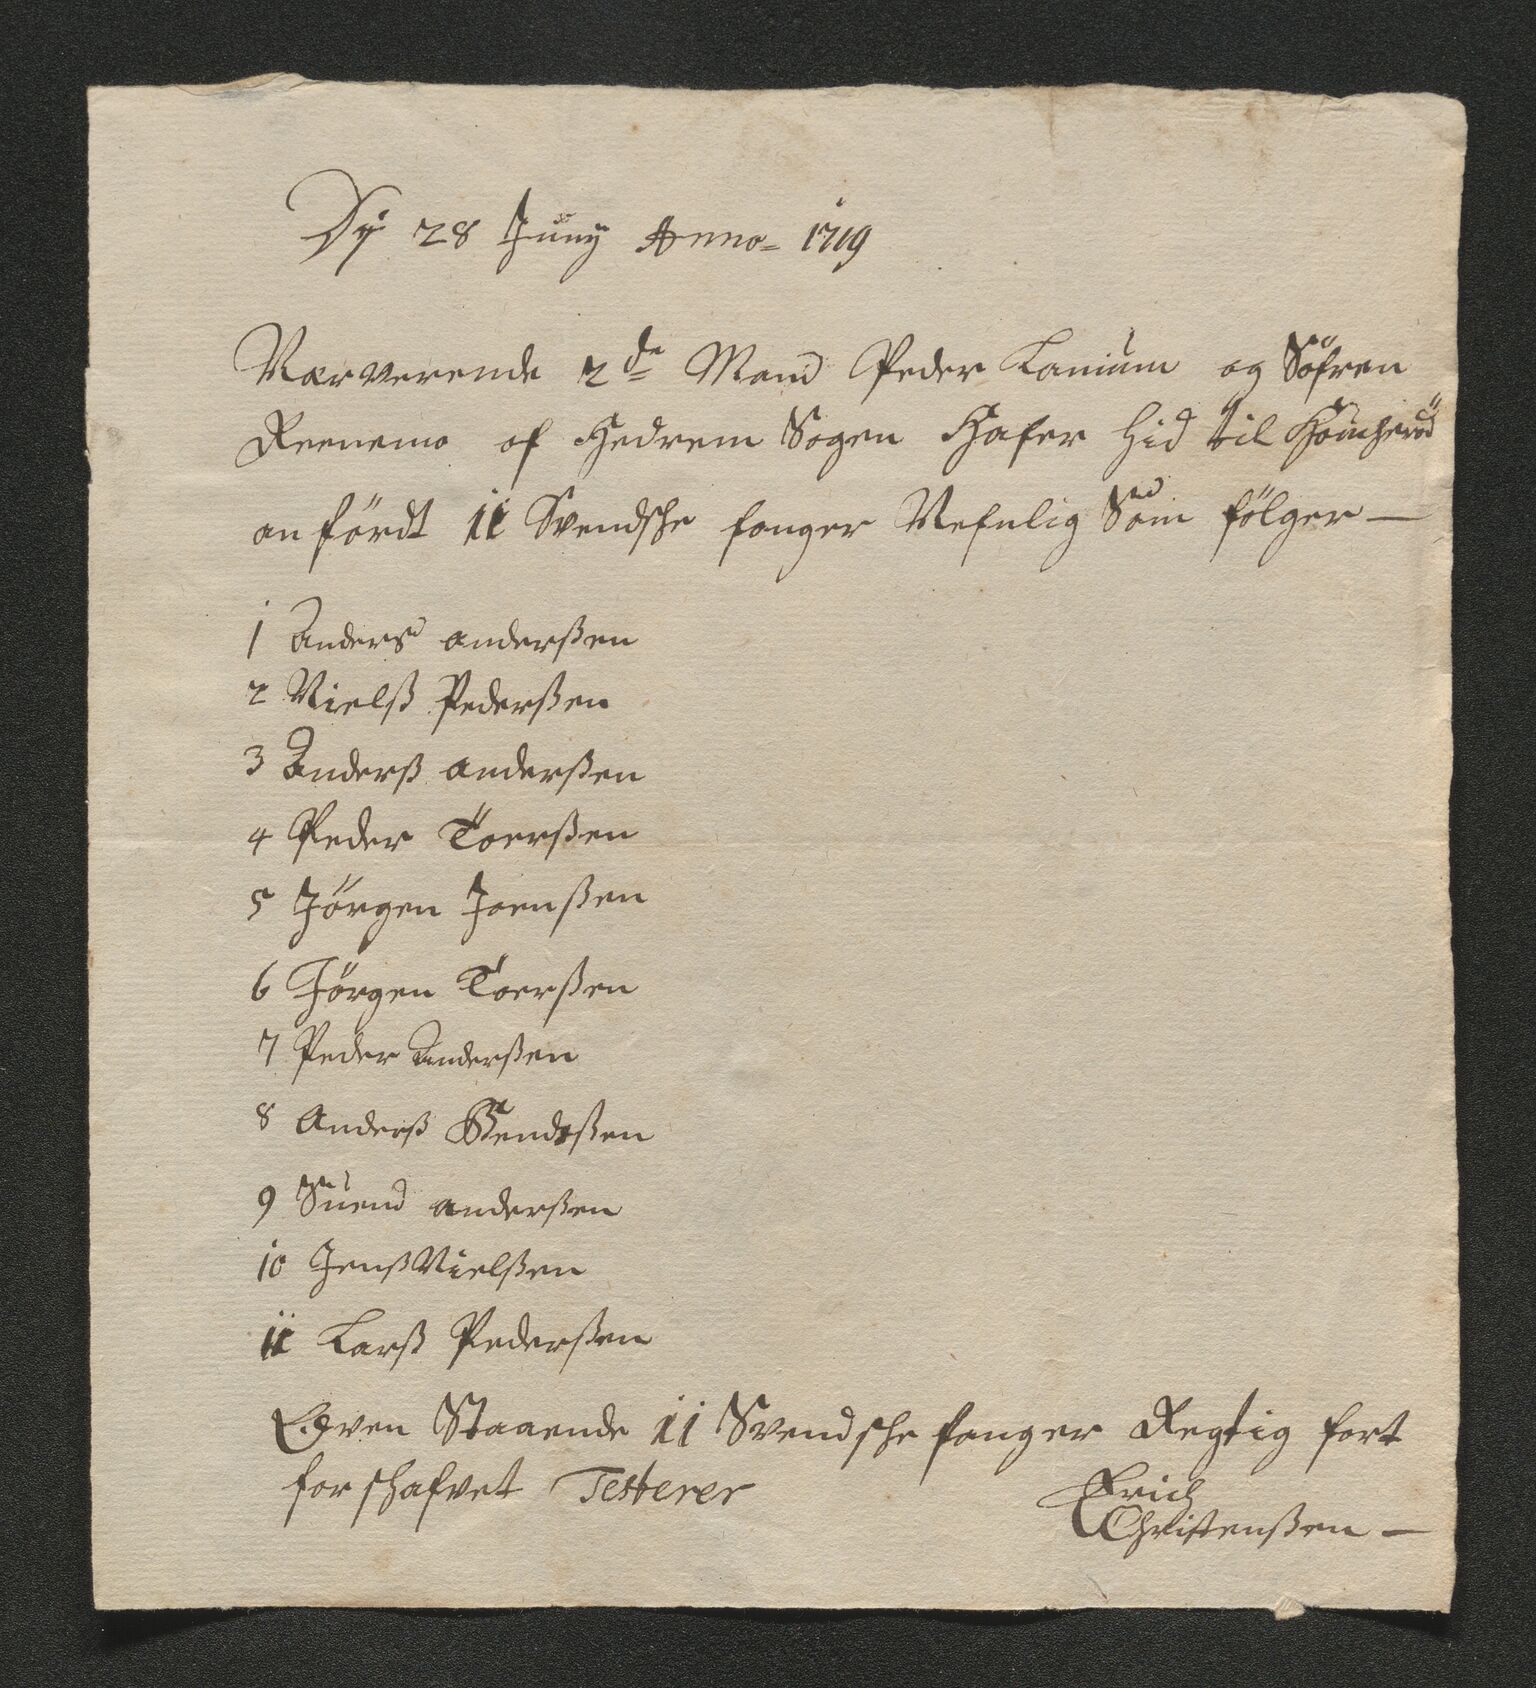 Dy 28 Juny Anno= 1719
Nærverende 2de Mand Peder Lanium og Söfren
Reenemo af Hedrem Sogen Hafer hid til
anfördt 11 Svendsche fanger Nefnlig Som fölger —
1 Anders anderßen
2 Nielß Pederßen
3 Anderß anderßen
4 Peder Toerßen
5 Jörgen Joenßen
6 Jörgen Toerßen
7 Peder Anderßen
8 Anderß Svendßen
9 Suend anderßen
10 Jenß Nielßen
11 Larß Pederßen
Oven Staaende 11 Svendsche fanger Regtig fort
forschafvet Testerer
Erich
Christenßen —